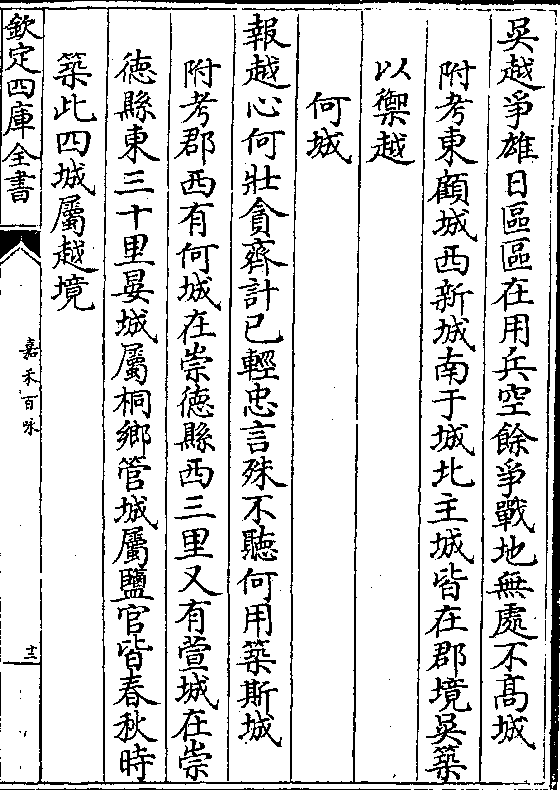 吳越爭雄日區區在用兵空餘爭戰地無處不髙城
附考東顧城西新城南于城北主城皆在郡境吳築
以禦越
何城
報越心何壯貪齊計已輕忠言殊不聽何用築斯城
附考郡西有何城在崇德縣西三里又有萱城在崇
德縣東三十里晏城屬桐鄉管城屬鹽官皆春秋時
築此四城屬越境
欽定四庫全書
嘉禾百咏
十三